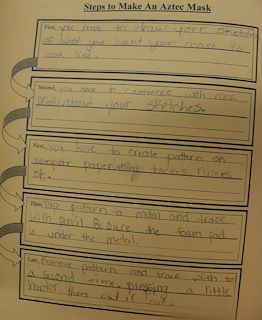 Steps to Make An Aztec Mask
First, you have to draw your sketch
of what you want your mask to
look like.
Second, you have to conference with mrs.
about your sketches.
Next, you have to create pattern on
computer paper using tracers, rulers
Then, Tape pattern to metal and trace
with & sure the foam pad
is under the metal.
Last, Remove pattern and trace with
a second time, pressing a little
harder then cut it out.